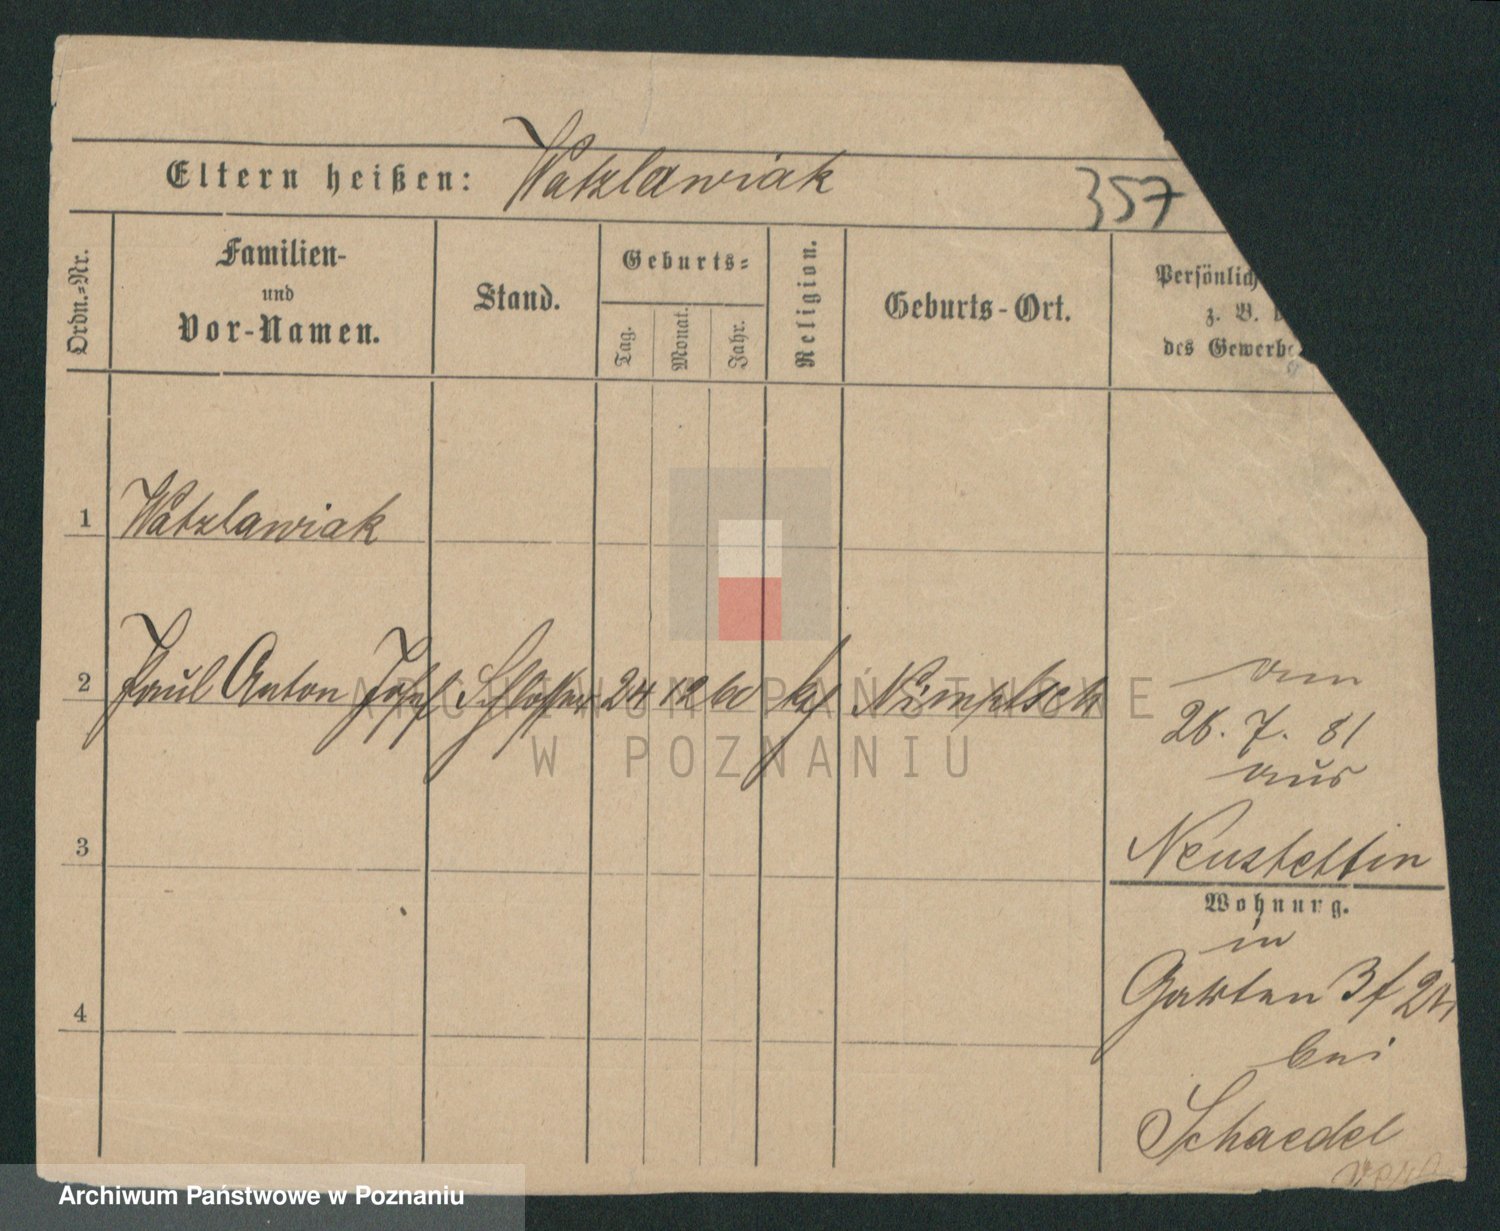 Eltern heißen: Watzlawiak
357
Ordn.=Nr.
Familien-
und
Vor-Namen.
Stand.
Geburts=
Tag.
Monat.
Jahr.
Religion.
Geburts-Ort.
Persönlich
z. B.
des Gewerbe
1 Watzlawiak
2 Paul Anton Josef Schlosser 24 12 60 kf Nimptsch
am
26. 7. 81
aus
Neustettin
3
Wohnung.
in
Garten 3
4
bei
Schaedel
ARCHIWUM PAŃSTWOWE
W POZNANIU
Archiwum Państwowe w Poznaniu